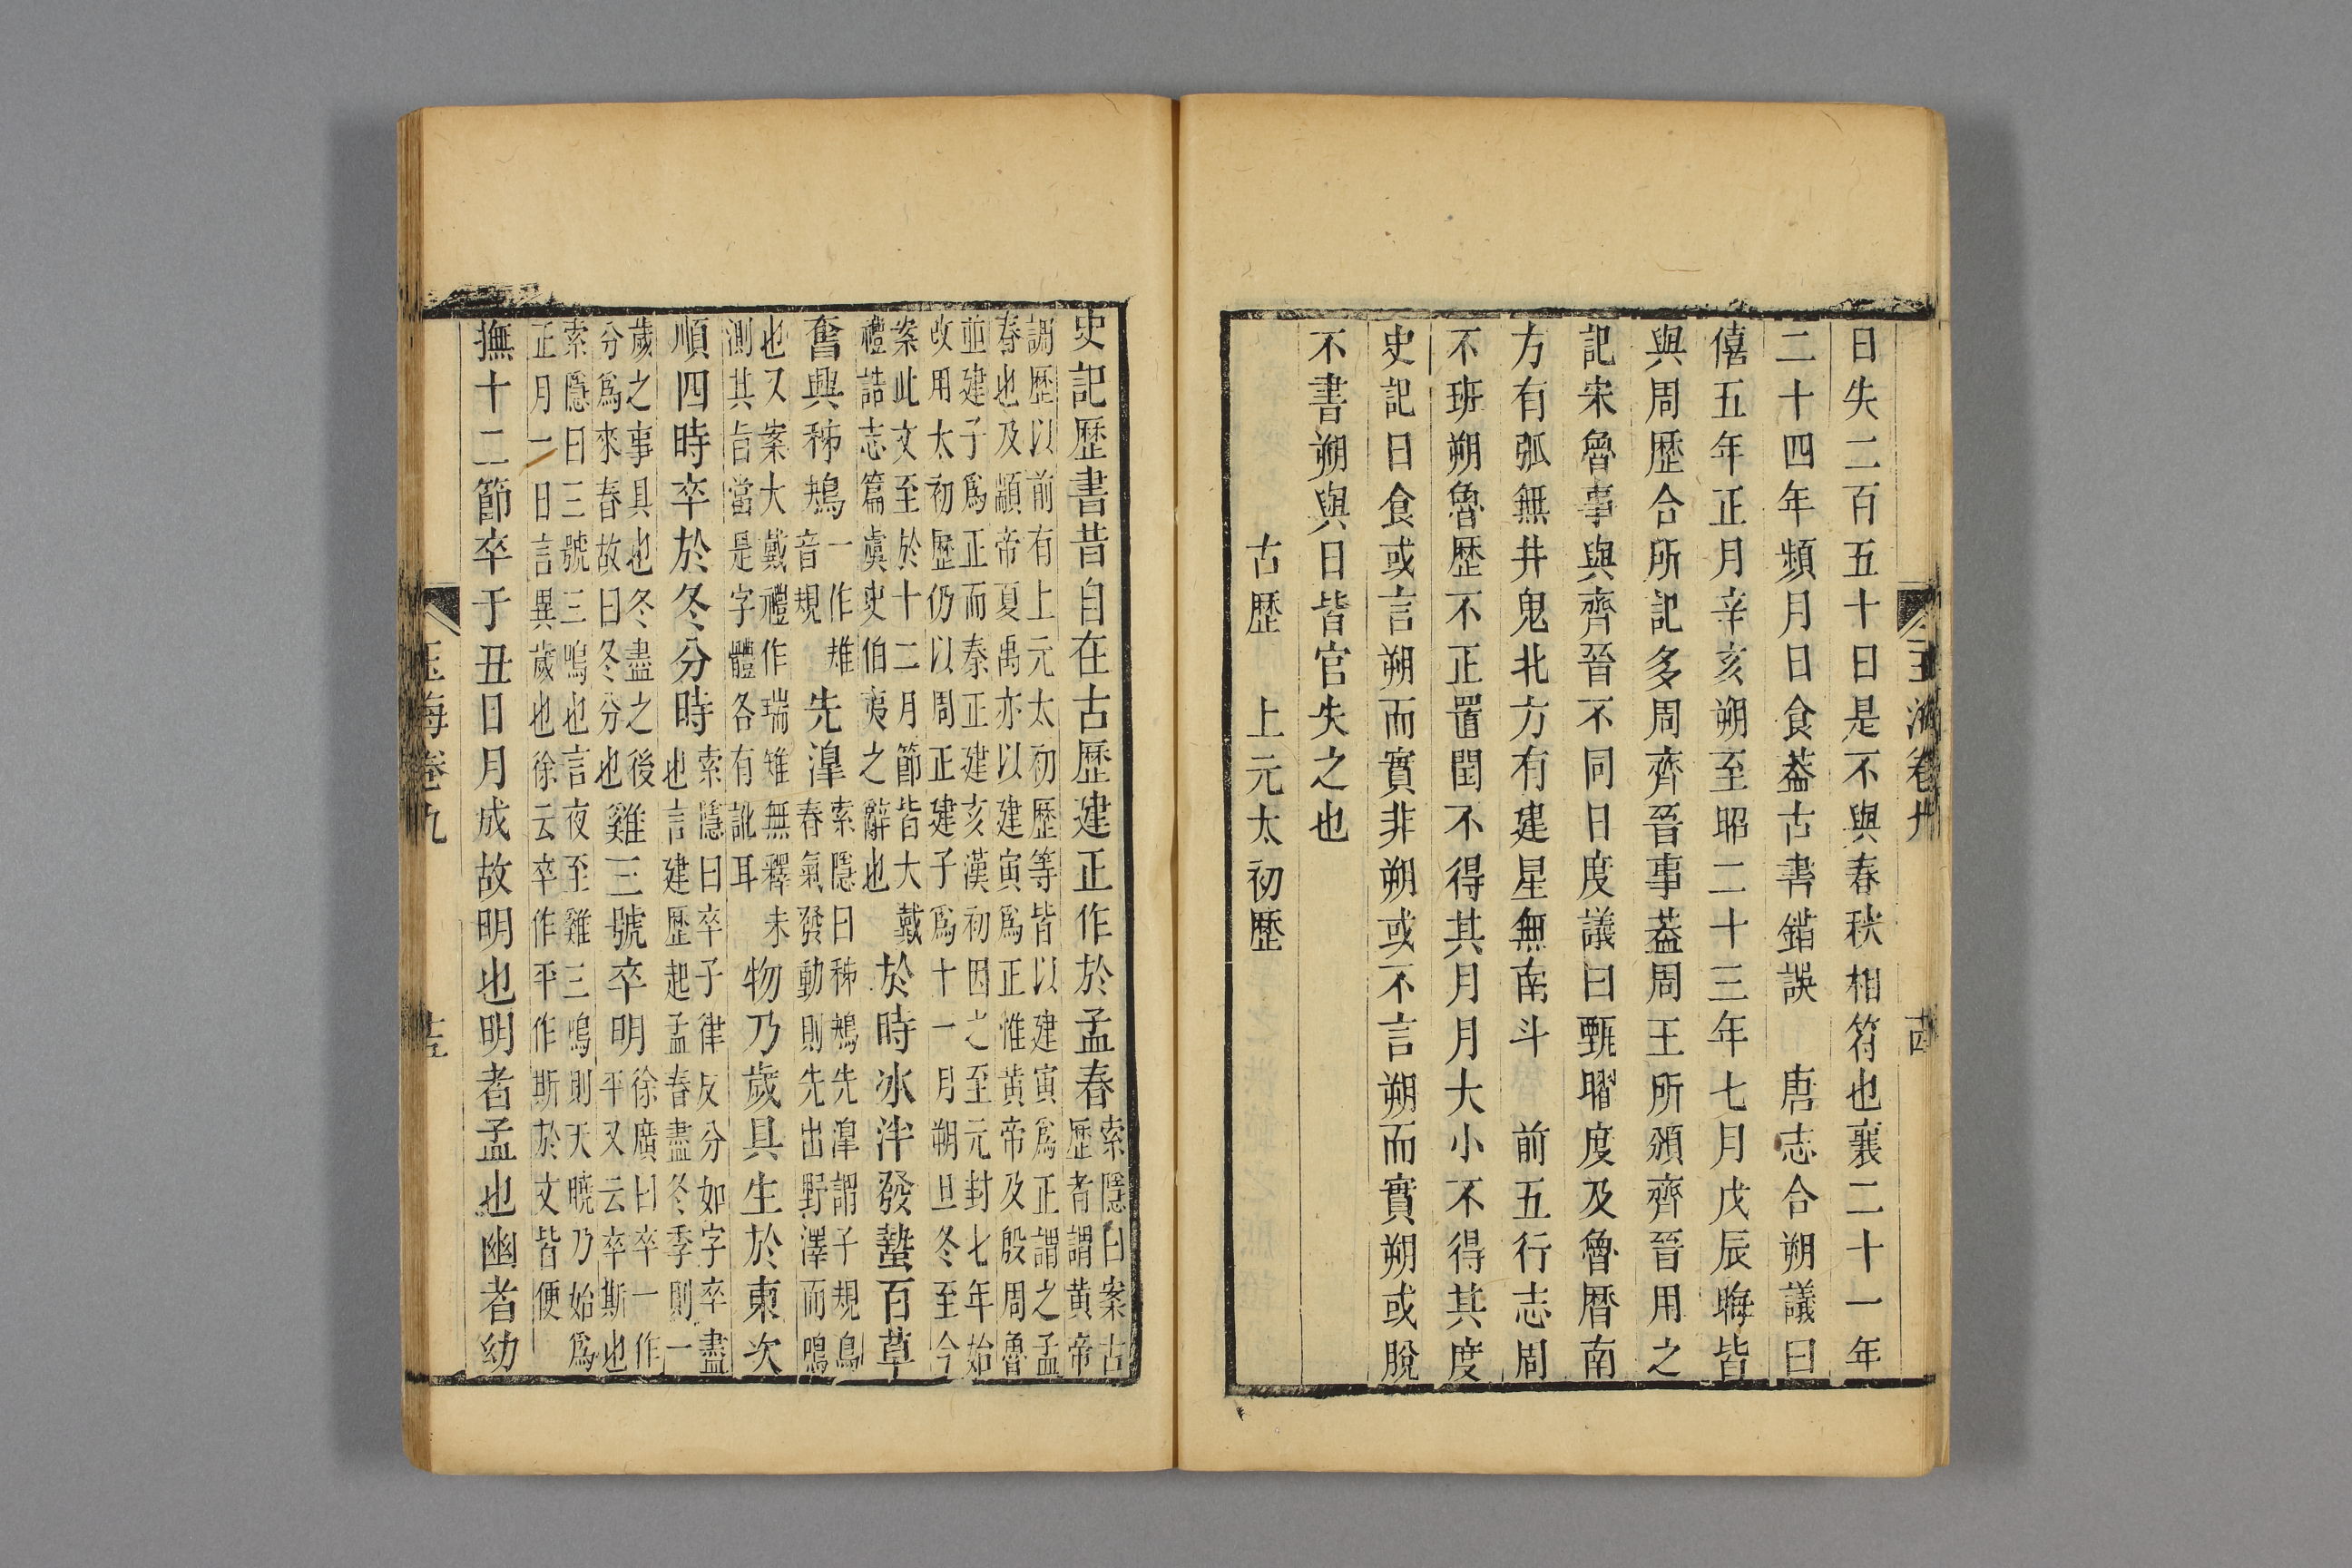 玉海卷九 十四
日失二百五十日是不與春秋相符也襄二十一年
二十四年頻月日食葢古書錯誤 唐志合朔議曰
僖五年正月辛亥朔至昭二十三年七月戊辰晦皆
與周歷合所記多周齊晉事葢周王所頒齊晉用之
記宋魯事與齊晉不同日度議曰甄曜度及魯曆南
方有弧無井鬼北方有建星無南斗 前五行志周
不班朔魯歷不正置閏不得其月月大小不得其度
史記日食或言朔而實非朔或不言朔而實朔或脫
不書朔與日皆官失之也
古歷 上元太初歷
史記歷書昔自在古歷建正作於孟春
索隱曰案古
歷者謂黄帝
調歷以前有上元太初歷等皆以建寅爲正謂之孟
春也及顓帝夏禹亦以建寅爲正惟黄帝及殷周魯
並建子爲正而秦正建亥漢初因之至元封七年始
改用太初歷仍以周正建子爲十一月朔旦冬至今
案此文至於十二月節皆大戴
禮誥志篇虞史伯夷之辭也
於時冰泮發蟄百草
奮興秭鳺
一作
音規
先滜
索隱曰秭鳺先滜謂子規鳥
春氣發動則先出野澤而鳴
也又案大戴禮作瑞雉無釋未
測其旨當是字體各有訛耳
物乃歲具生於東次
順四時卒於冬分時
索隱曰卒子律反分如字卒盡
也言建歷起孟春盡冬季則一
歲之事具也冬盡之後
分爲來春故曰冬分也
雞三號卒明
徐廣曰卒一作
平又云卒斯也
索隱曰三號三鳴也言夜至雞三鳴則天曉乃始爲
正月一日言異歲也徐云卒作平作斯於文皆便
撫十二節卒于丑日月成故明也明者孟也幽者幼
玉海卷九 十五